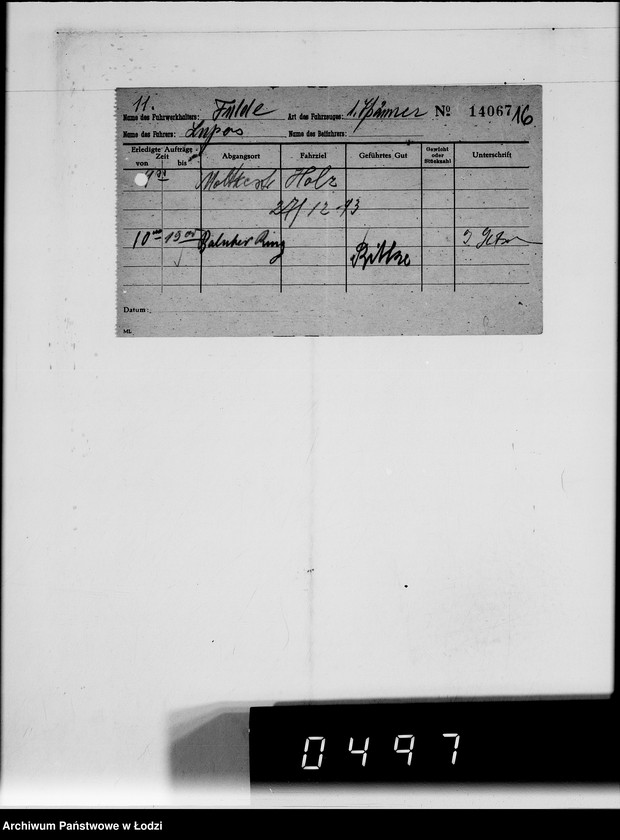 11.
Name des Fuhrwerkhalters: Fulde Art des Fahrzeuges: 1. Spänner № 14067 16
Name des Fahrers: Lupas Name des Beifahrers:
Erledigte Aufträge Zeit von bis Abgangsort Fahrziel Geführtes Gut Gewicht oder Stückzahl Unterschrift
Holz
27/12 43
10 19 Baluter Ring
Datum:
ML
0497
Archiwum Państwowe w Łodzi